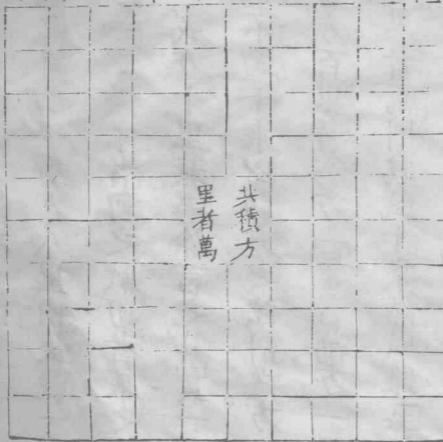 共積方
里者萬